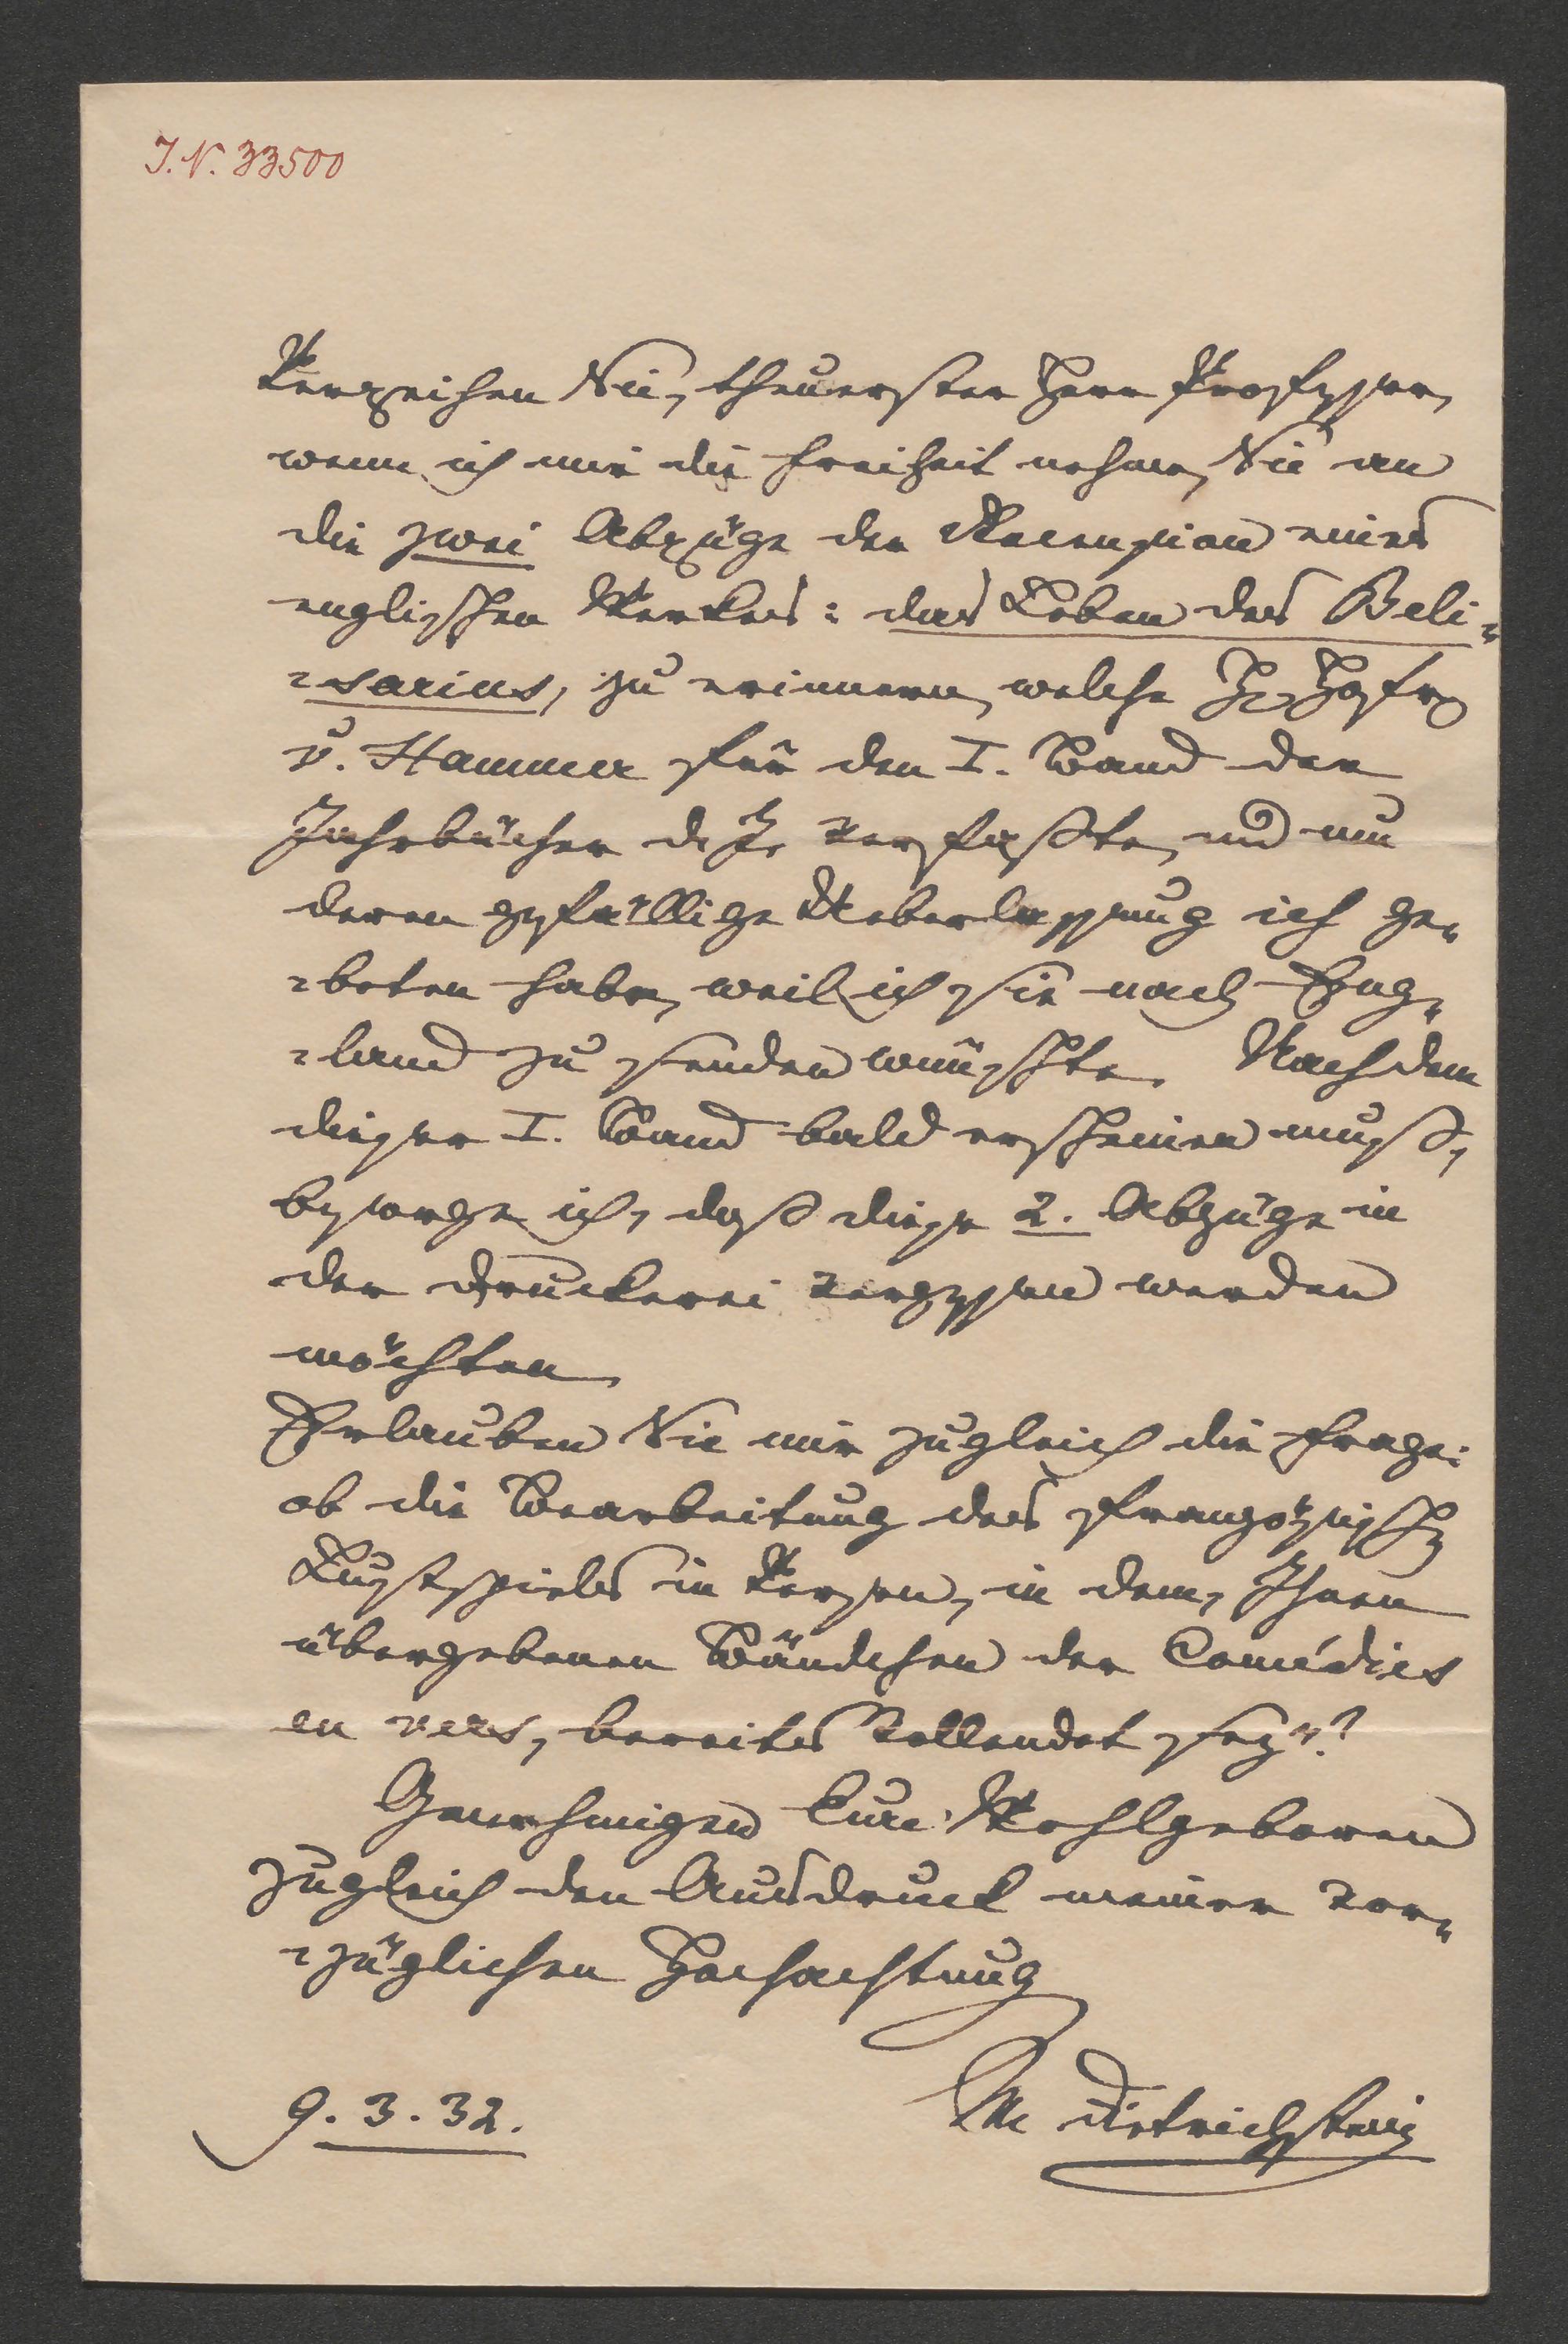 J.N. 33500
Verzeihen Sie, theuerster Herr Professor,
wenn ich mir die Freiheit nehme, Sie an
die zwei Abzüge der Recension eines
englischen Werkes: das Leben des Beli-
-sarius, zu erinnern, welche H. Hofr.
v. Hammer für den I. Band der
Jahrbücher d. J. verfaßte, und um
deren gefällige Ueberlassung ich ge-
-beten habe, weil ich sie nach Eng-
-land zu senden wünschte. Nachdem
dieser I. Band bald erscheinen muß,
besorge ich, daß diese 2. Abzüge in
der Druckerei vergessen werden
möchten.
Erlauben Sie mir zugleich die Frage:
ob die Bearbeitung des französisch
Lustspieles in Versen, in dem, Ihnen
übergebenen Bändchen der Comédies
en vers, bereits vollendet sey?
Genehmigen Eure Wohlgeboren
zugleich den Ausdruck meiner vor-
-züglichen Hochachtung
9.3.32.
M Dietrichstein